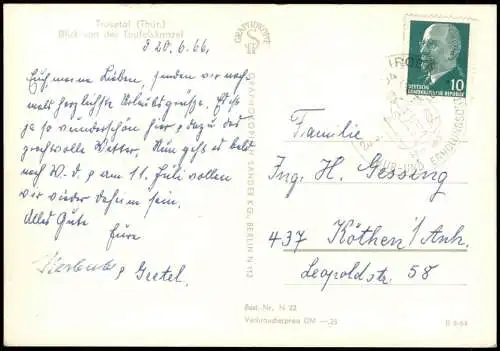 Trusetal (Thür.)
Blick von der Teufelskanzel
d 20.6.66.
Euch meine Lieben, senden wir noch-
mals herzlichste Urlaubsgrüße. Es ist
ja so wunderschön hier u dazu das
prachtvolle Wetter. Nun gehts es bald
nach W. d. u am 11. Juli wollen
wir wieder daheim sein.
Alles Gute
Eure
Herbert u Gretel.
GRAPHOKOPIE H. SANDER KG, BERLIN N 113
10
DEUTSCHE
DEMOKRATISCHE REPUBLIK
Familie
Ing. H. Gessing
437 Köthen/Anh.
Leopoldstr. 58
Best.-Nr. N 22
Verbraucherpreis DM —,25